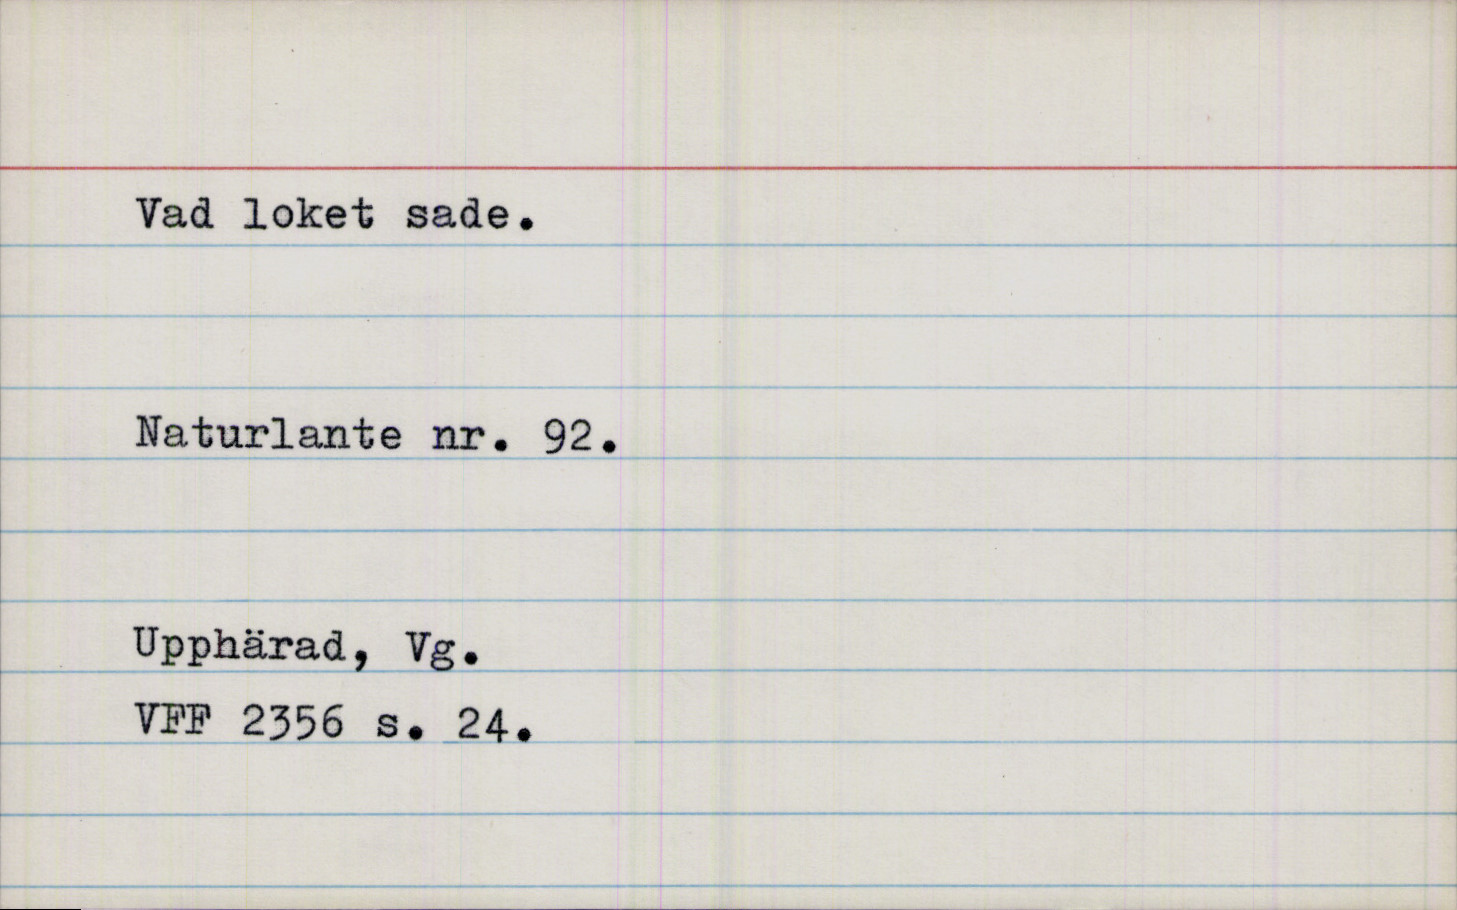 Vad loket sade.
Naturlante nr. 92.
Upphärad, Vg.
VFF 2356 s. 24.